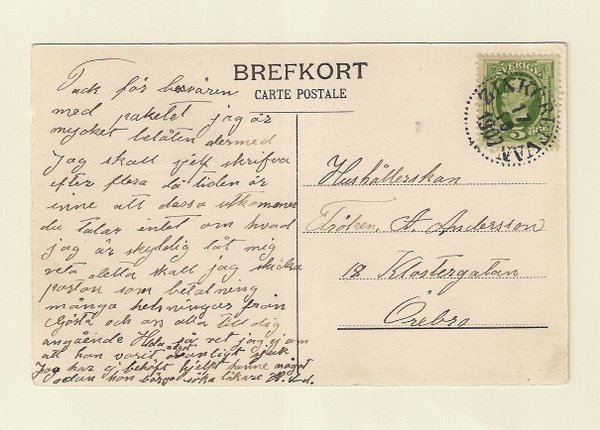 BREFKORT
CARTE POSTALE
SVERIGE
5
17
1907
Tack för besvären
med paketet jag är
mycket belåten dermed
Jag skall sjelf skrifva
efter flera då tiden är
inne att dessa utkommer
du talar intet om hvad
jag är skyldig låt mig
veta detta skall jag skicka
porton som betalning
många helsningar från
Gösta och oss alla till dig
angående Hilda så vet jag ej om
att hon varit ovanligt sjuk
Jag har ej behöft hjelpt henne något
sedan hon började söka läkare
Hushållerskan
Fröken A. Andersson
18 Klostergatan
Örebro